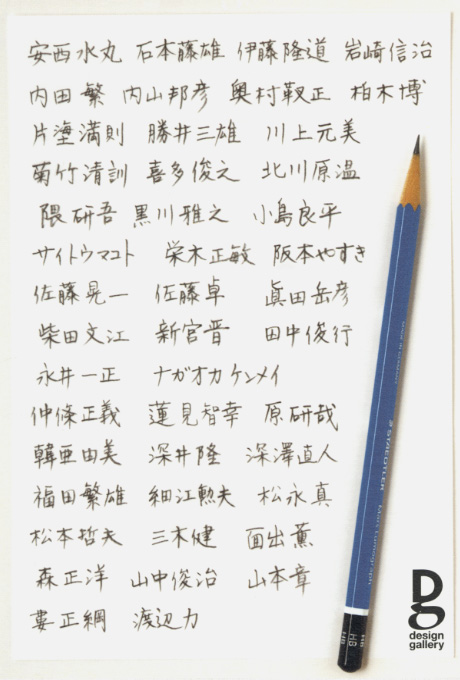 安西水丸 石本藤雄 伊藤隆道 岩崎信治
内田繁 内山邦彦 奥村靫正 柏木博
片塰満則 勝井三雄 川上元美
菊竹清訓 喜多俊之 北川原温
隈研吾 黒川雅之 小島良平
サイトウマコト 栄木正敏 阪本やすき
佐藤晃一 佐藤卓 眞田岳彦
柴田文江 新宮晋 田中俊行
永井一正 ナガオカケンメイ
仲條正義 蓮見智幸 原研哉
韓亜由美 深井隆 深澤直人
福田繁雄 細江勲夫 松永真
松本哲夫 三木健 面出薫
森正洋 山中俊治 山本章
婁正綱 渡辺力
STAEDTLER
HB
HB
design
gallery